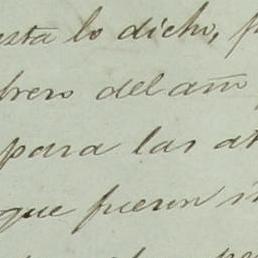 esta lo dicho, p
brero del año
para las at
que fueron si